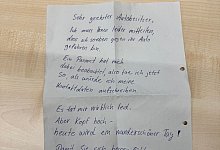 Sehr geehrter Autobesitzer,
ich muss Ihnen leider mitteilen,
dass ich soeben gegen ihr Auto
gefahren bin.
Ein Passant hat mich
dabei beobachtet, also tue ich jetzt
so, als würde ich meine
Kontaktdaten aufschreiben
Es tut mir wirklich leid.
Aber Kopf hoch -
heute wird ein wunderschöner Tag!